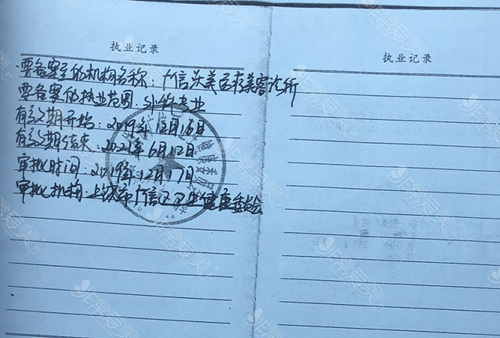 执业记录
要备案的机构名称：广信沃美医疗美容诊所
要备案的执业范围：外科专业
有效期开始：2019年12月16日
有效期结束：2021年6月12日
审批时间：2019年12月17日
审批机构：上饶市广信区卫生健康委员会
执业记录